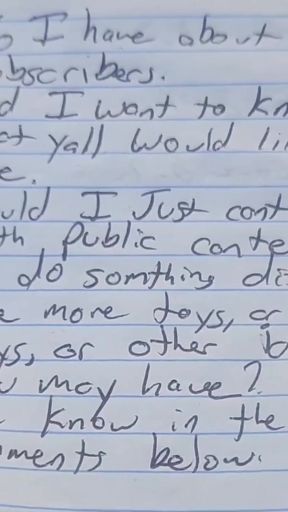 I have about
bscribers.
d I want to kn
at yall would li
e.
uld I Just cont
th public conte
do somthing di
e more toys, or
ys, or other b
may have?
know in the
ments below.